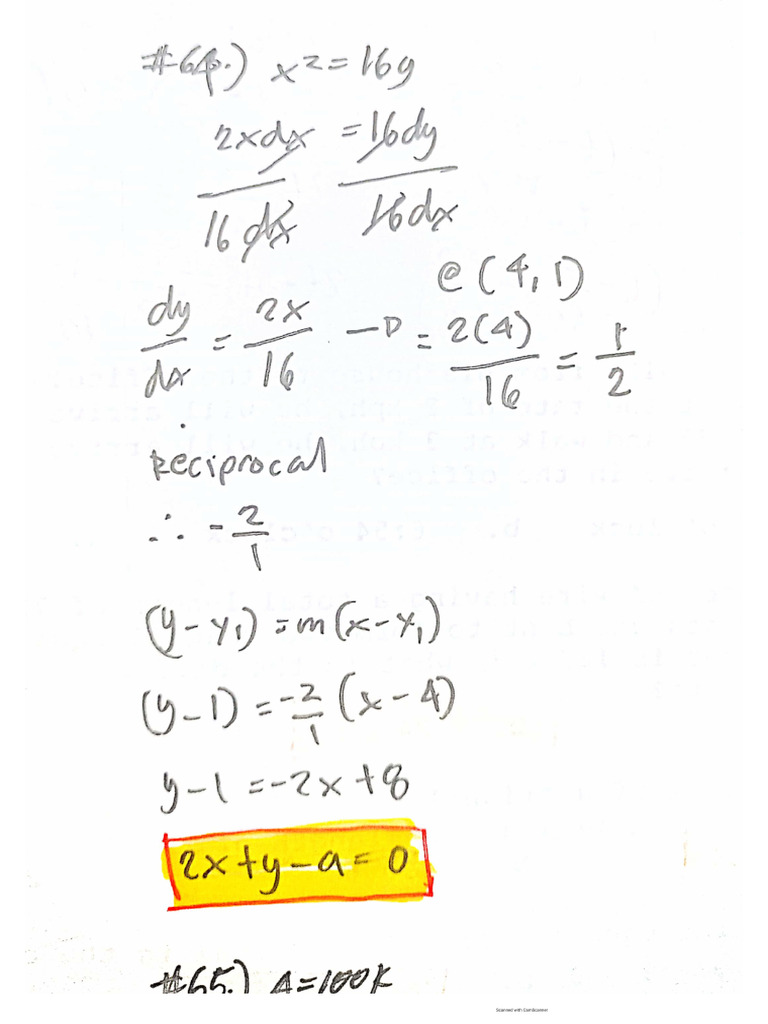 #64.) x² = 16y
2xdx = 16dy
16dx 16dx
@ (4,1)
dy/dx = 2x/16 → = 2(4)/16 = 1/2
Reciprocal
∴ -2/1
(y-y₁) = m(x-x₁)
(y-1) = -2/1 (x-4)
y-1 = -2x+8
2x+y-9=0
#65.) A=100k
Scanned with CamScanner